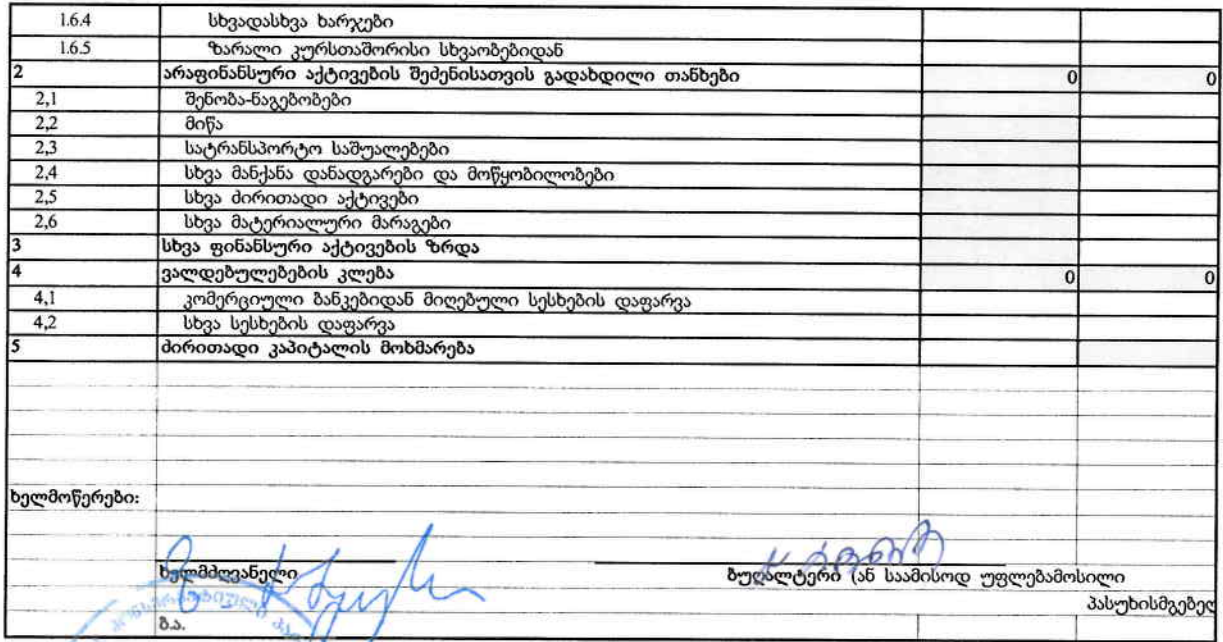 1.6.4 სხვადასხვა ხარჯები
1.6.5 ზარალი კურსთაშორისი სხვაობებიდან
2 არაფინანსური აქტივების შეძენისათვის გადახდილი თანხები 0 0
2,1 შენობა-ნაგებობები
2,2 მიწა
2,3 სატრანსპორტო საშუალებები
2,4 სხვა მანქანა დანადგარები და მოწყობილობები
2,5 სხვა ძირითადი აქტივები
2,6 სხვა მატერიალური მარაგები
3 სხვა ფინანსური აქტივების ზრდა
4 ვალდებულებების კლება 0 0
4,1 კომერციული ბანკებიდან მიღებული სესხების დაფარვა
4,2 სხვა სესხების დაფარვა
5 ძირითადი კაპიტალის მოხმარება
ხელმოწერები:
ხელმძღვანელი ბუღალტერი (ან საამისოდ უფლებამოსილი
პასუხისმგებელ
ბ.ა.